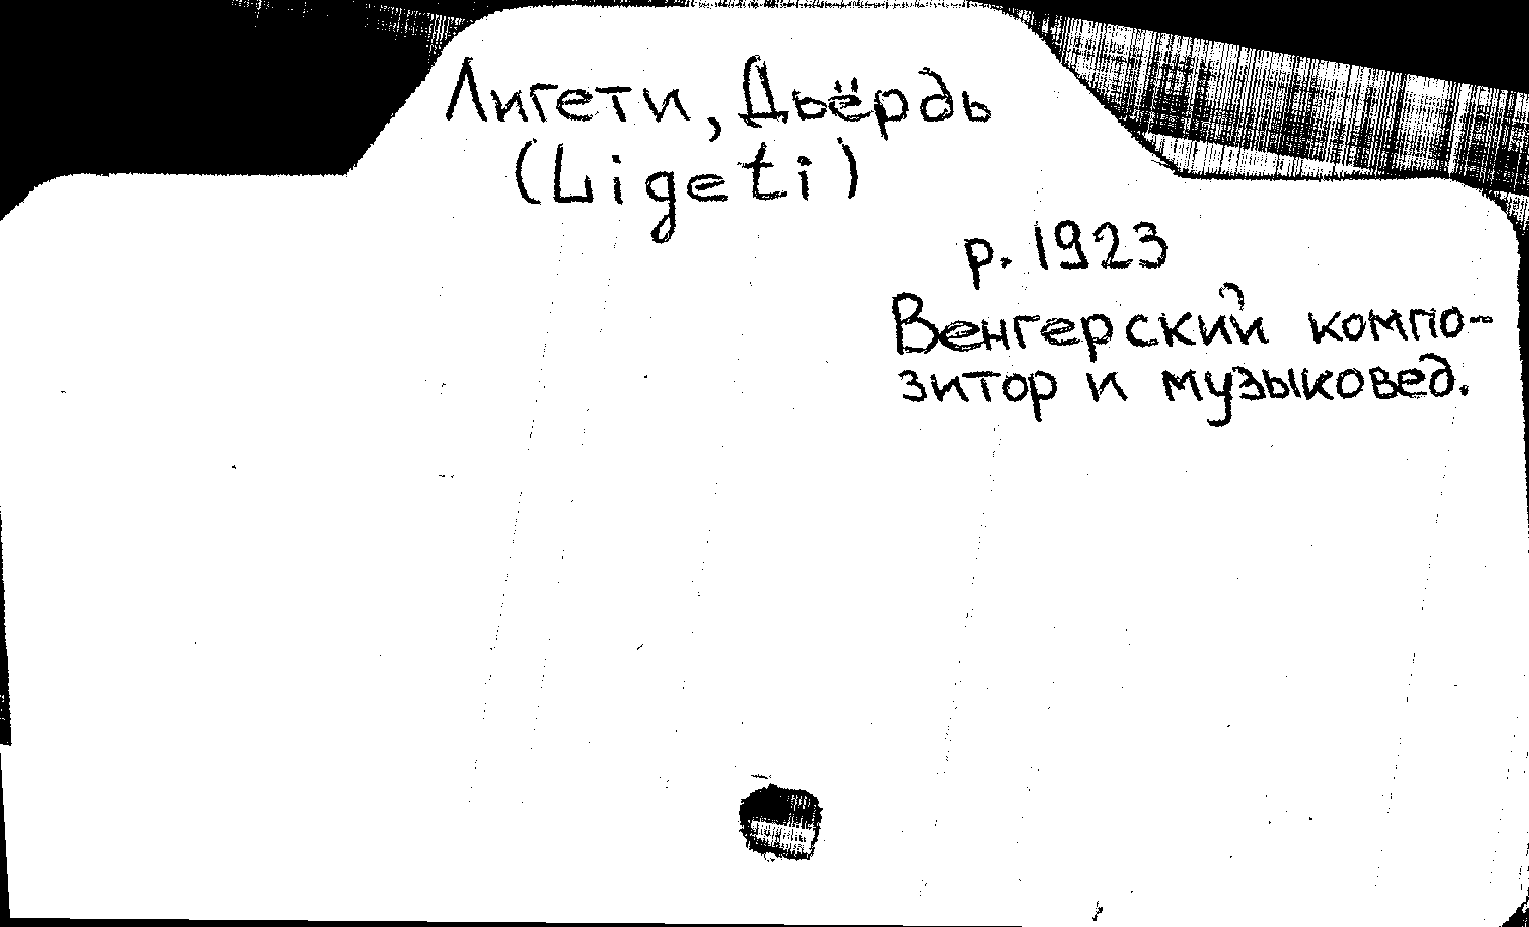 Лигети, Дьёрдь
(Ligeti)
р. 1923
Венгерский компо-
зитор и музыковед.